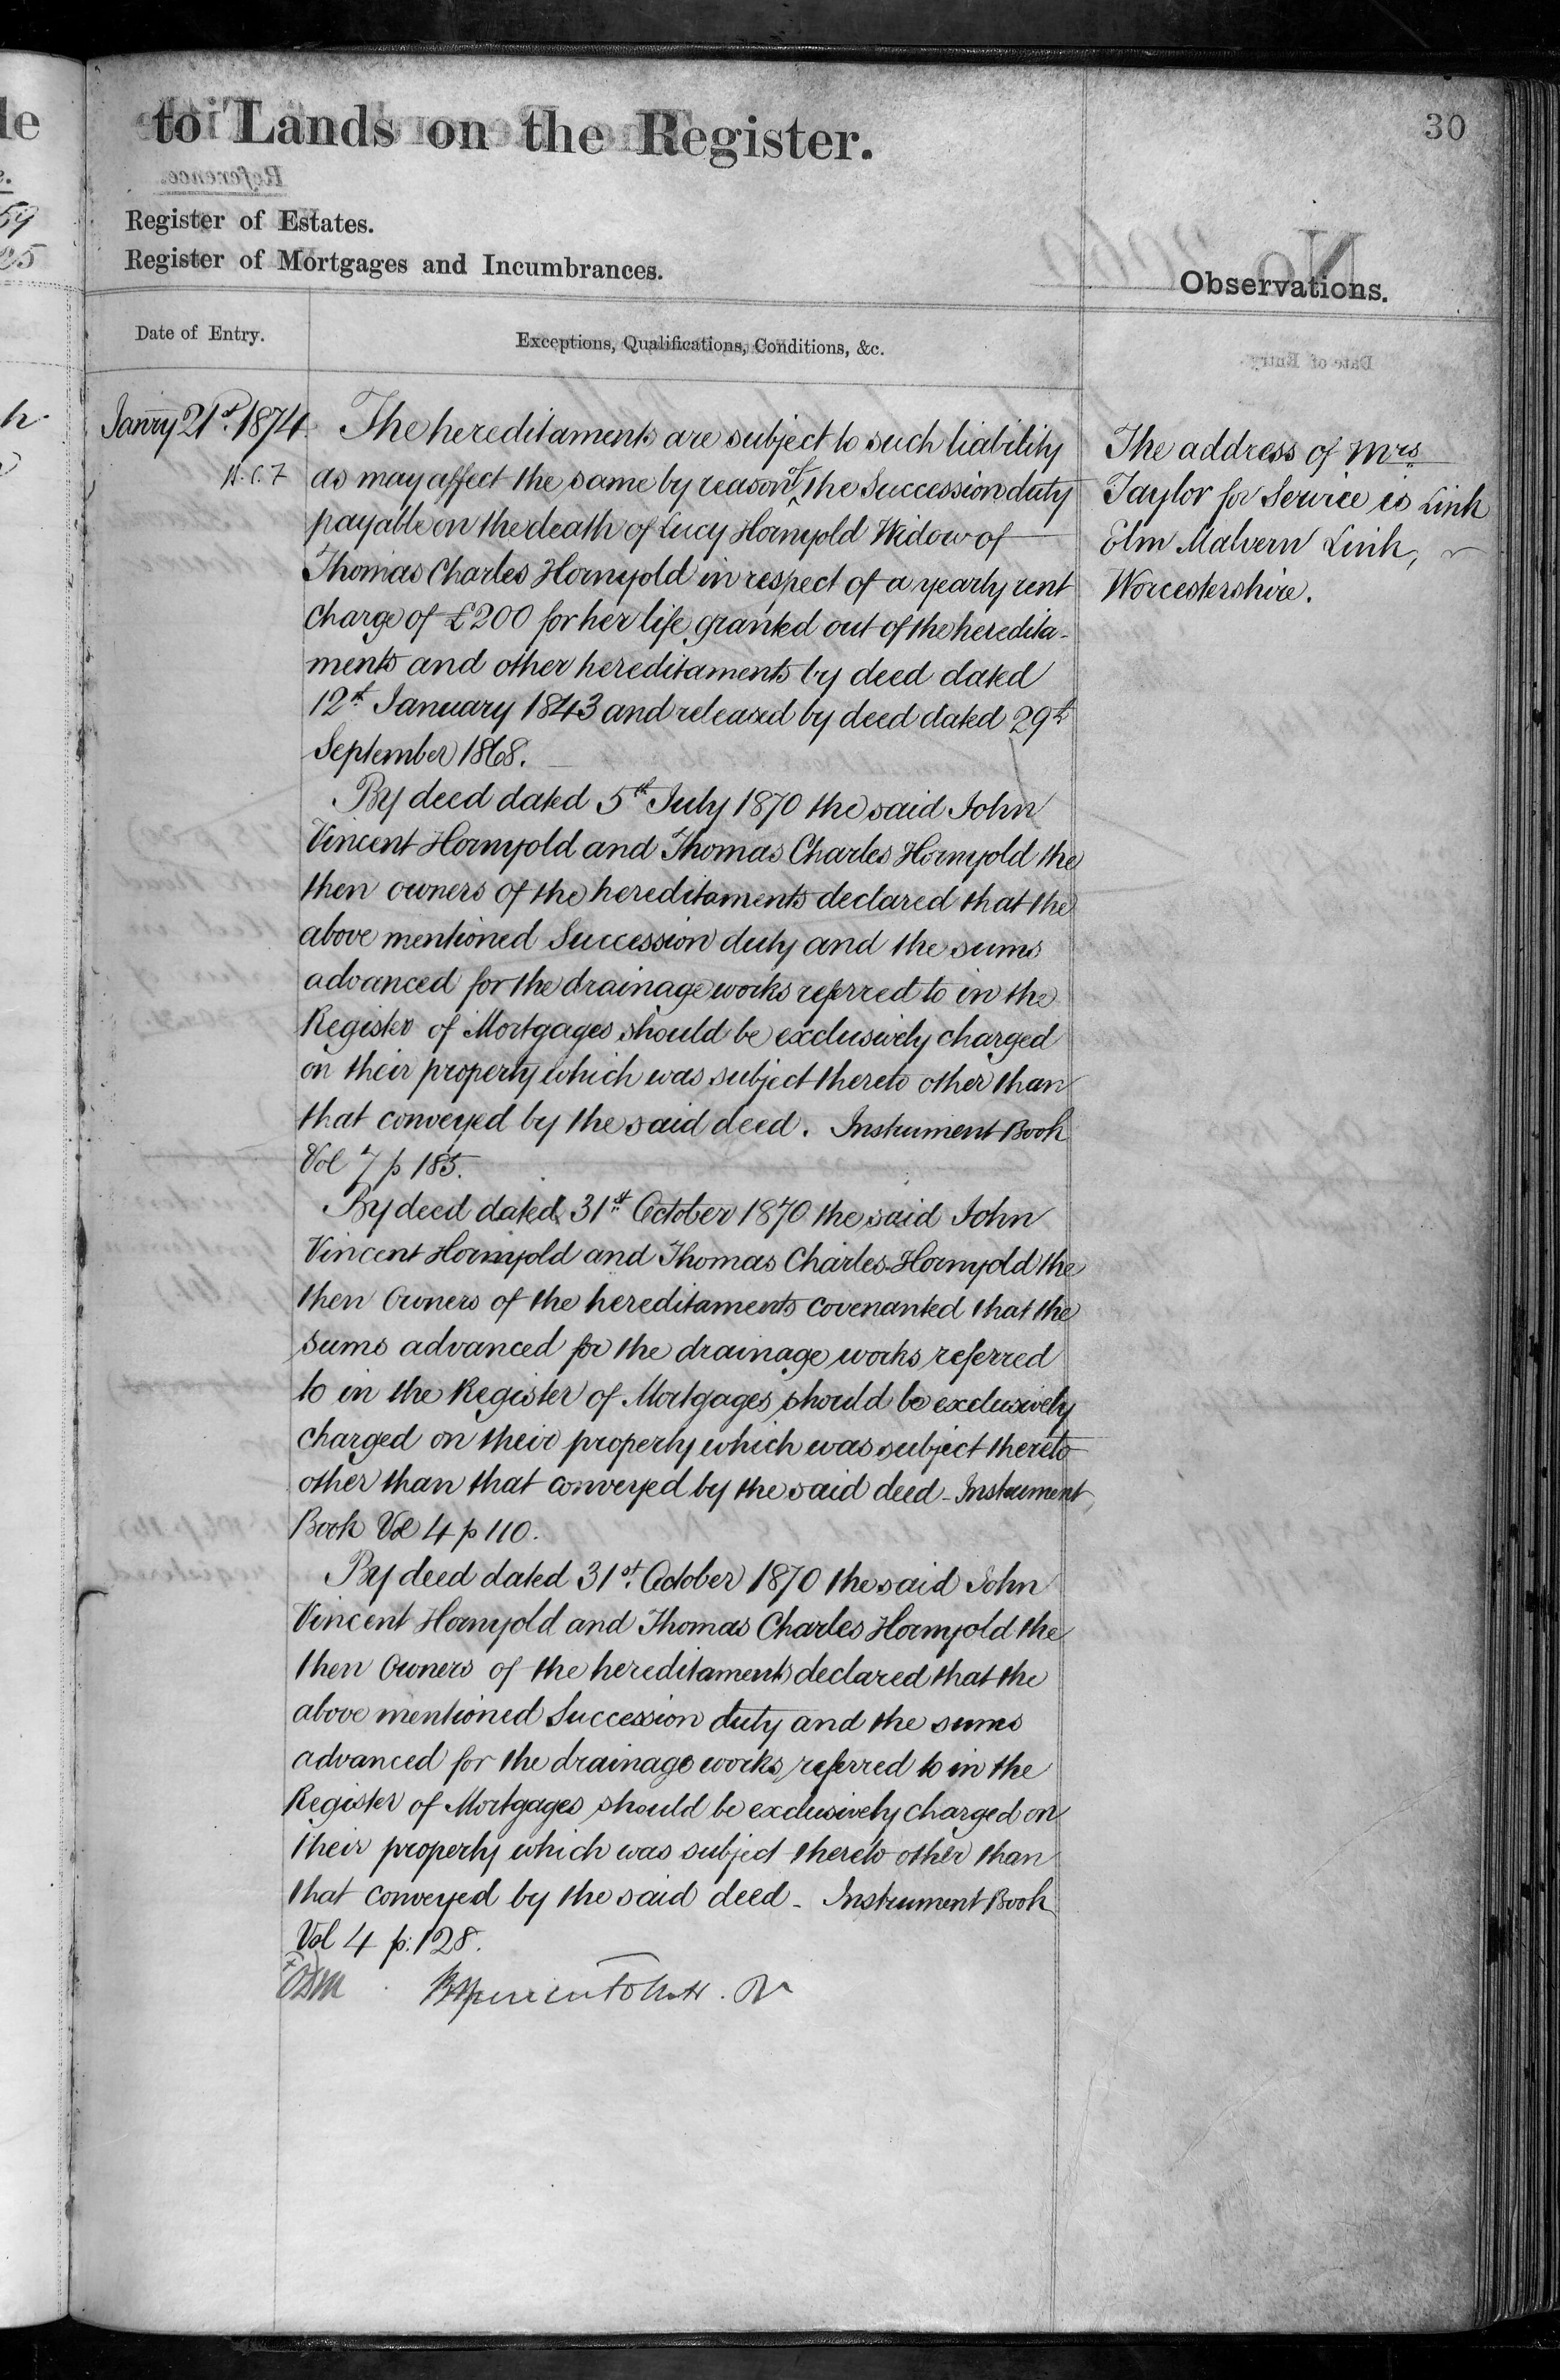 to Lands on the Register.
30
Register of Estates.
Register of Mortgages and Incumbrances.
Observations.
Date of Entry.
Exceptions, Qualifications, Conditions, &c.
Janry 21st. 1874.
The hereditaments are subject to such liability
as may affect the same by reason of the Succession duty
payable on the death of Lucy Hornyold Widow of
Thomas Charles Hornyold in respect of a yearly rent
charge of £200 for her life granted out of the heredita-
ments and other hereditaments by deed dated
12th January 1843 and released by deed dated 29th
September 1868.
By deed dated 5th July 1870 the said John
Vincent Hornyold and Thomas Charles Hornyold the
then owners of the hereditaments declared that the
above mentioned Succession duty and the sums
advanced for the drainage works referred to in the
Register of Mortgages should be exclusively charged
on their property which was subject thereto other than
that conveyed by the said deed. Instrument Book
Vol 7 p 185.
By deed dated 31st October 1870 the said John
Vincent Hornyold and Thomas Charles Hornyold the
then Owners of the hereditaments covenanted that the
sums advanced for the drainage works referred
to in the Register of Mortgages should be exclusively
charged on their property which was subject thereto
other than that conveyed by the said deed - Instrument
Book Vol 4 p 110.
By deed dated 31st. October 1870 the said John
Vincent Hornyold and Thomas Charles Hornyold the
then Owners of the hereditaments declared that the
above mentioned Succession duty and the sums
advanced for the drainage works referred to in the
Register of Mortgages should be exclusively charged on
their property which was subject thereto other than
that conveyed by the said deed - Instrument Book
Vol 4 p: 128.
The address of Mrs
Taylor for Service is Link
Elm Malvern Link,
Worcestershire.